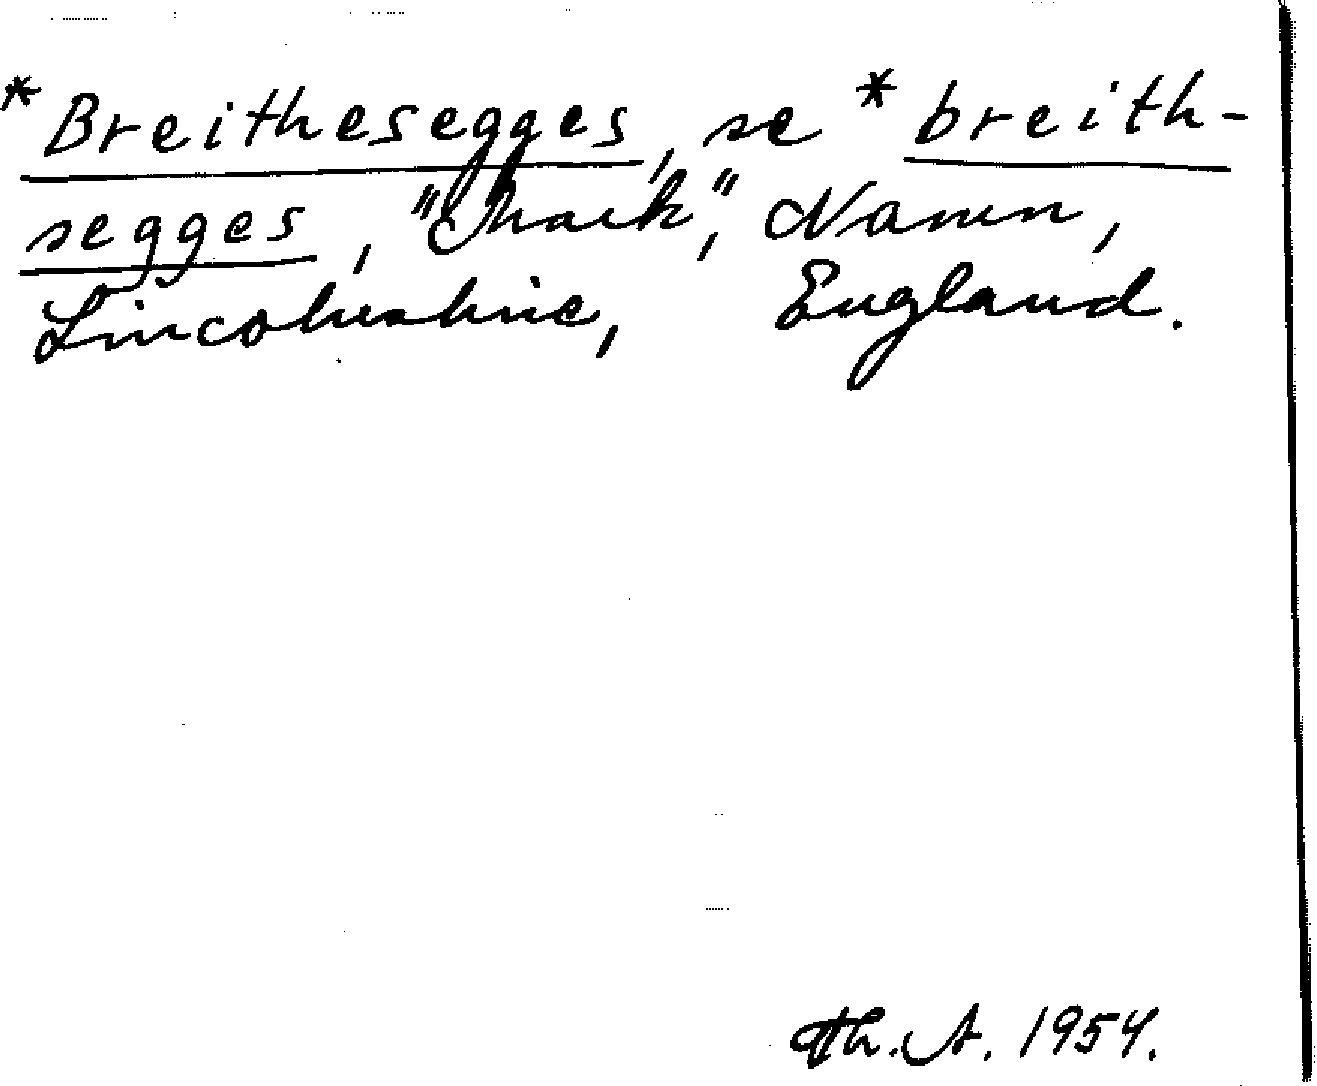 *Breithesegges, se *breith-
segges, Namn,
Lincolnshire, England.
Th. A. 1954.